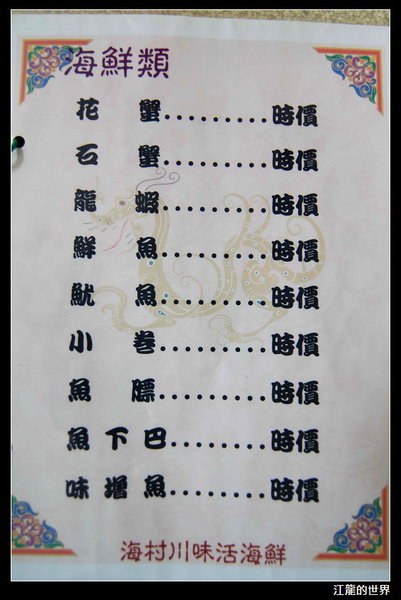 海鮮類
花蟹.........時價
石蟹.........時價
龍蝦.........時價
鮮魚.........時價
魷魚.........時價
小卷.........時價
魚膘.........時價
魚下巴.........時價
味增魚.........時價
海村川味活海鮮
江龍的世界